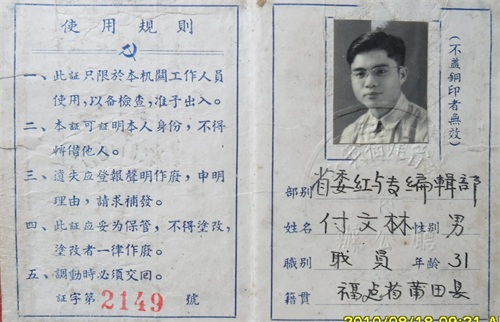 使用規则
一、此証只限於本机關工作人员
使用，以备檢查，准予出入。
二、本証可証明本人身份，不得
轉借他人。
三、遺失应登報聲明作廢，申明
理由，請求補發。
四、此証应妥为保管，不得塗改，
塗改者一律作廢。
五、調動時必須交回。
証字第2149號
(不蓋鋼印者無效)
部別 省委红与专編輯部
姓名 付文林 性別 男
職別 職員 年龄 31
籍貫 福建省莆田县
2010/08/18 09:21